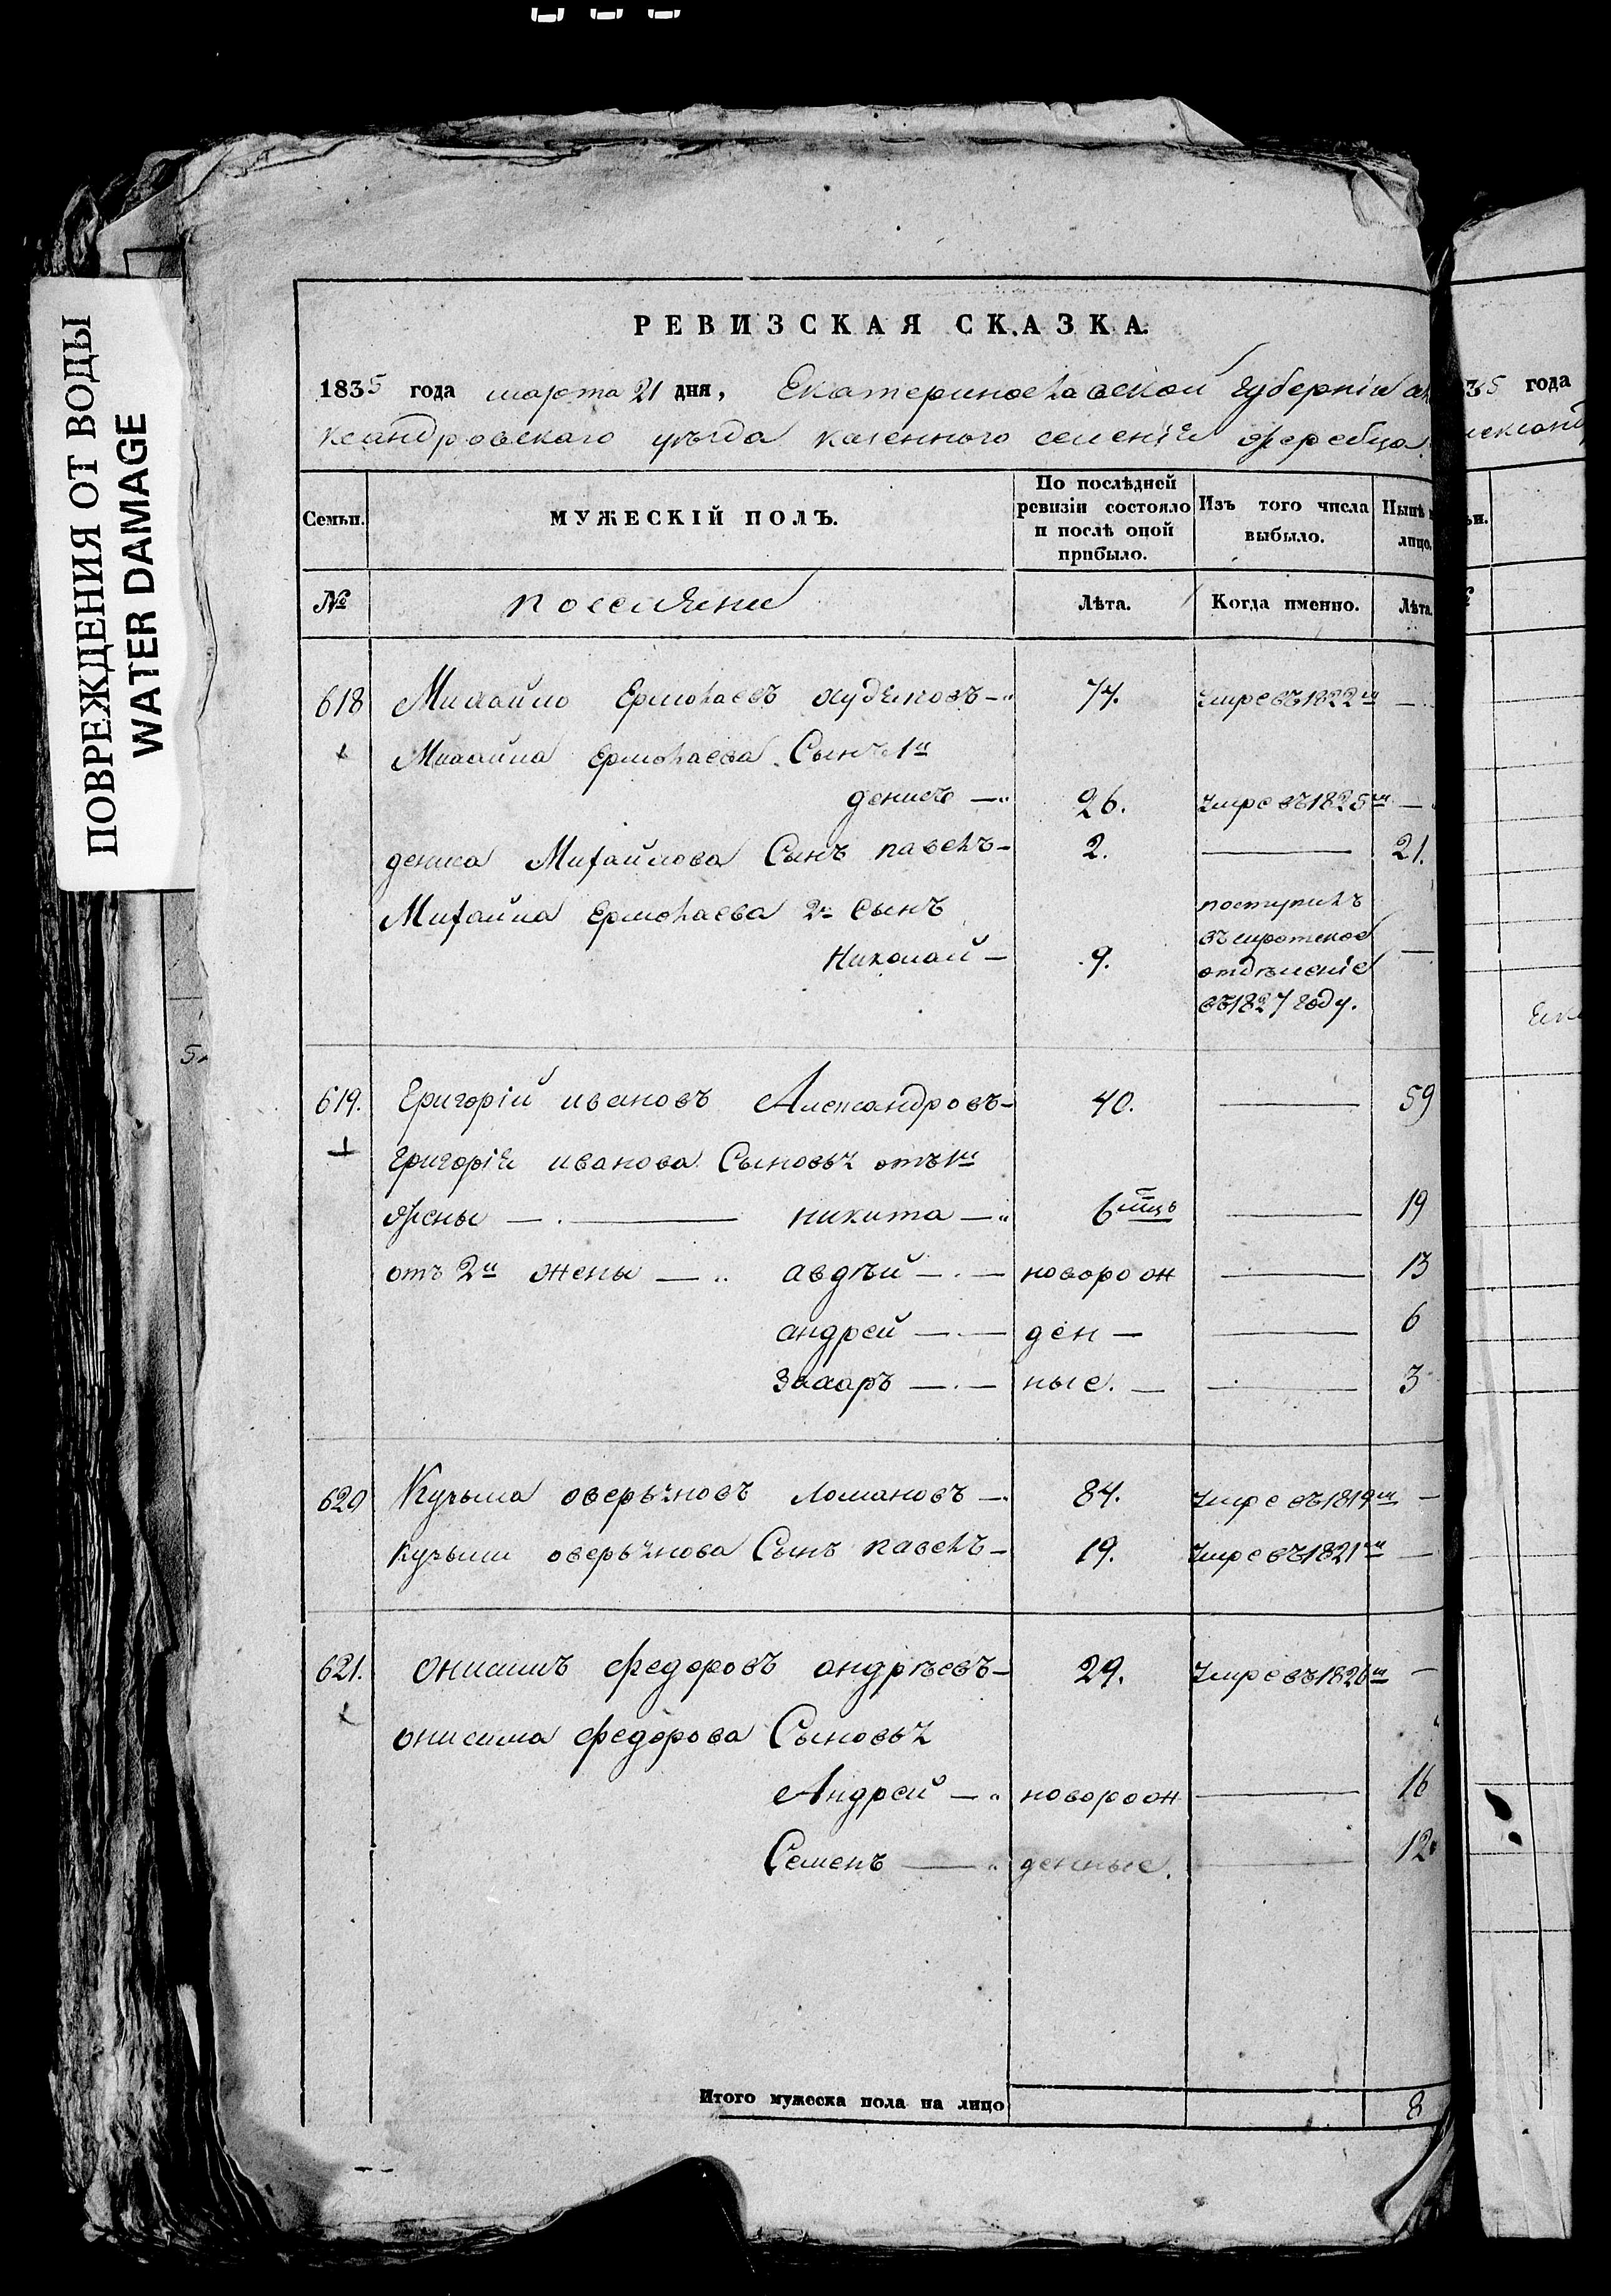 ПОВРЕЖДЕНИЯ ОТ ВОДЫ
WATER DAMAGE
РЕВИЗСКАЯ СКАЗКА.
1835 года марта 21 дня, Екатеринославской губерніи але
ксандровскаго уѣзда казенного селенія жеребца.
Семьи.
МУЖЕСКІЙ ПОЛЪ.
По послѣдней
ревизіи состояло
и послѣ оной
прибыло.
Изъ того числа
выбыло.
Нынѣ
лицо.
№ поселяне Лѣта. Когда именно. Лѣта.
618 Михайло Ермолаевъ худяковъ 74. умре въ 1822м —
Михайла Ермолаева Сынъ 1й
денисъ 26. умре въ 1825м —
дениса Михайлова Сынъ павелъ 2. — 21.
Михайла Ермолаева 2й Сынъ
Николай 9. поступилъ
въ сиротское
отдѣленіе
въ 1827 году. —
619. Григорій ивановъ Александровъ 40. — 59
григорія иванова Сыновья отъ 1й
жены — никита 6 мцъ — 19
отъ 2й жены — авдѣй — норворож — 13
андрей — ден — — 6
захаръ — ные. — — 3
620 Кузьма аверьяновъ ломановъ 84. умре въ 1819м —
кузьмы аверьянова Сынъ павелъ 19. умре въ 1821м —
621. Онисимъ федоровъ андрѣевъ 29. умре въ 1826м —
онисима федорова Сыновья
Андрей — новорож — 16
Семенъ — денные. — 12
Итого мужеска пола на лицо 8
35 года
лександ